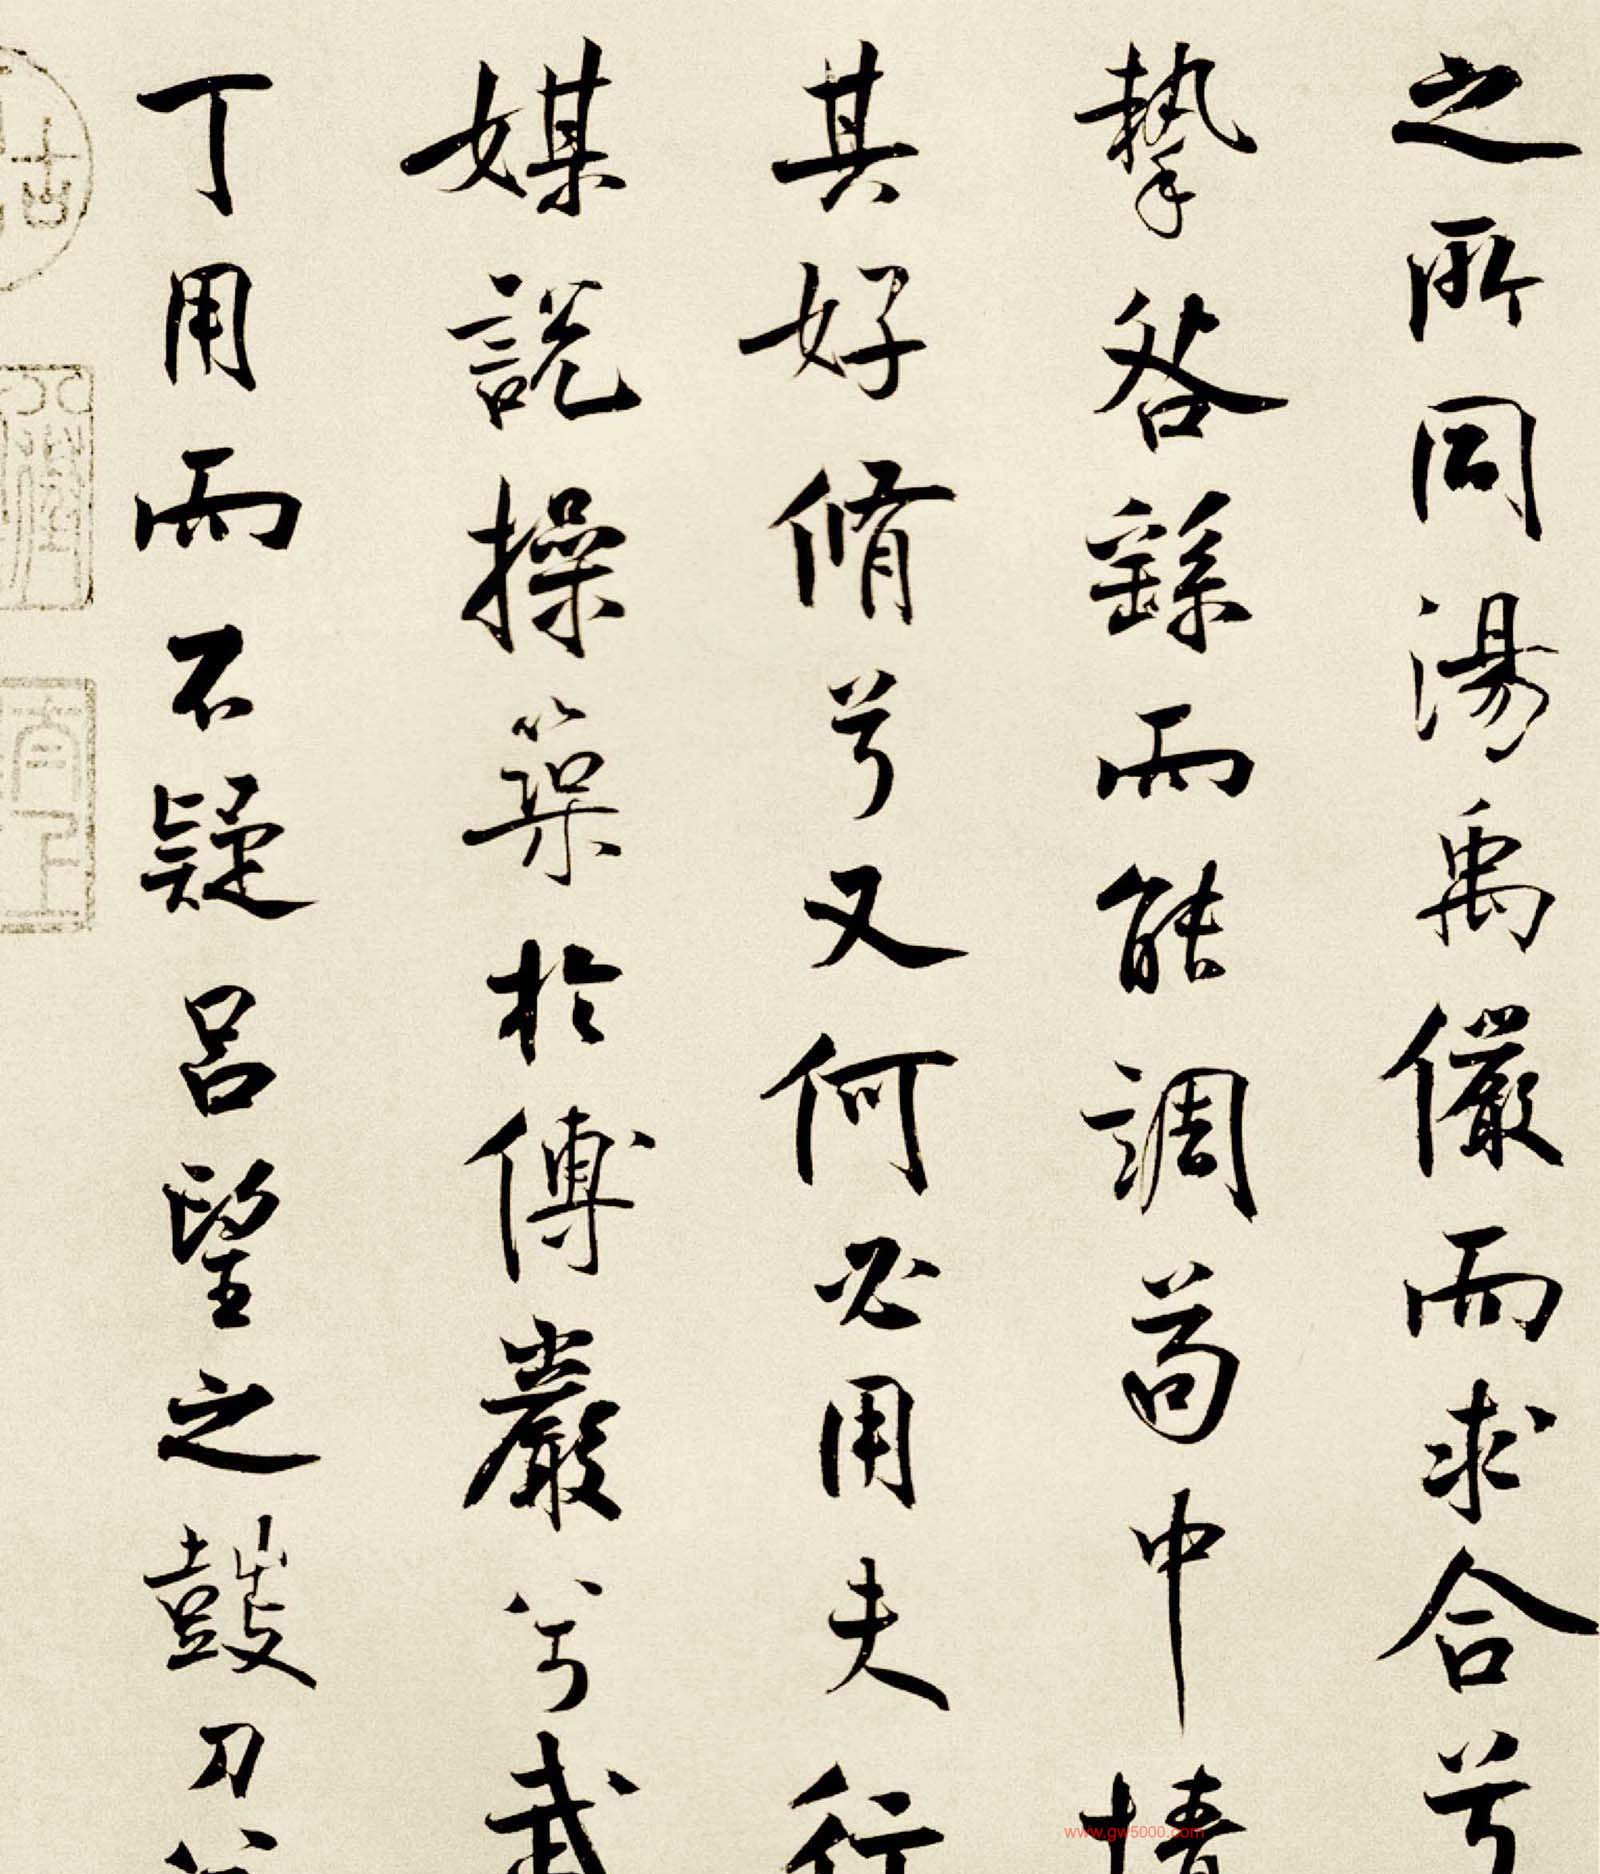 之所同湯禹儼而求合兮
摯咎繇而能調苟中情
其好脩兮又何必用夫行
媒說操築於傅巖兮武
丁用而不疑呂望之鼓刀兮
www.gw5000.com